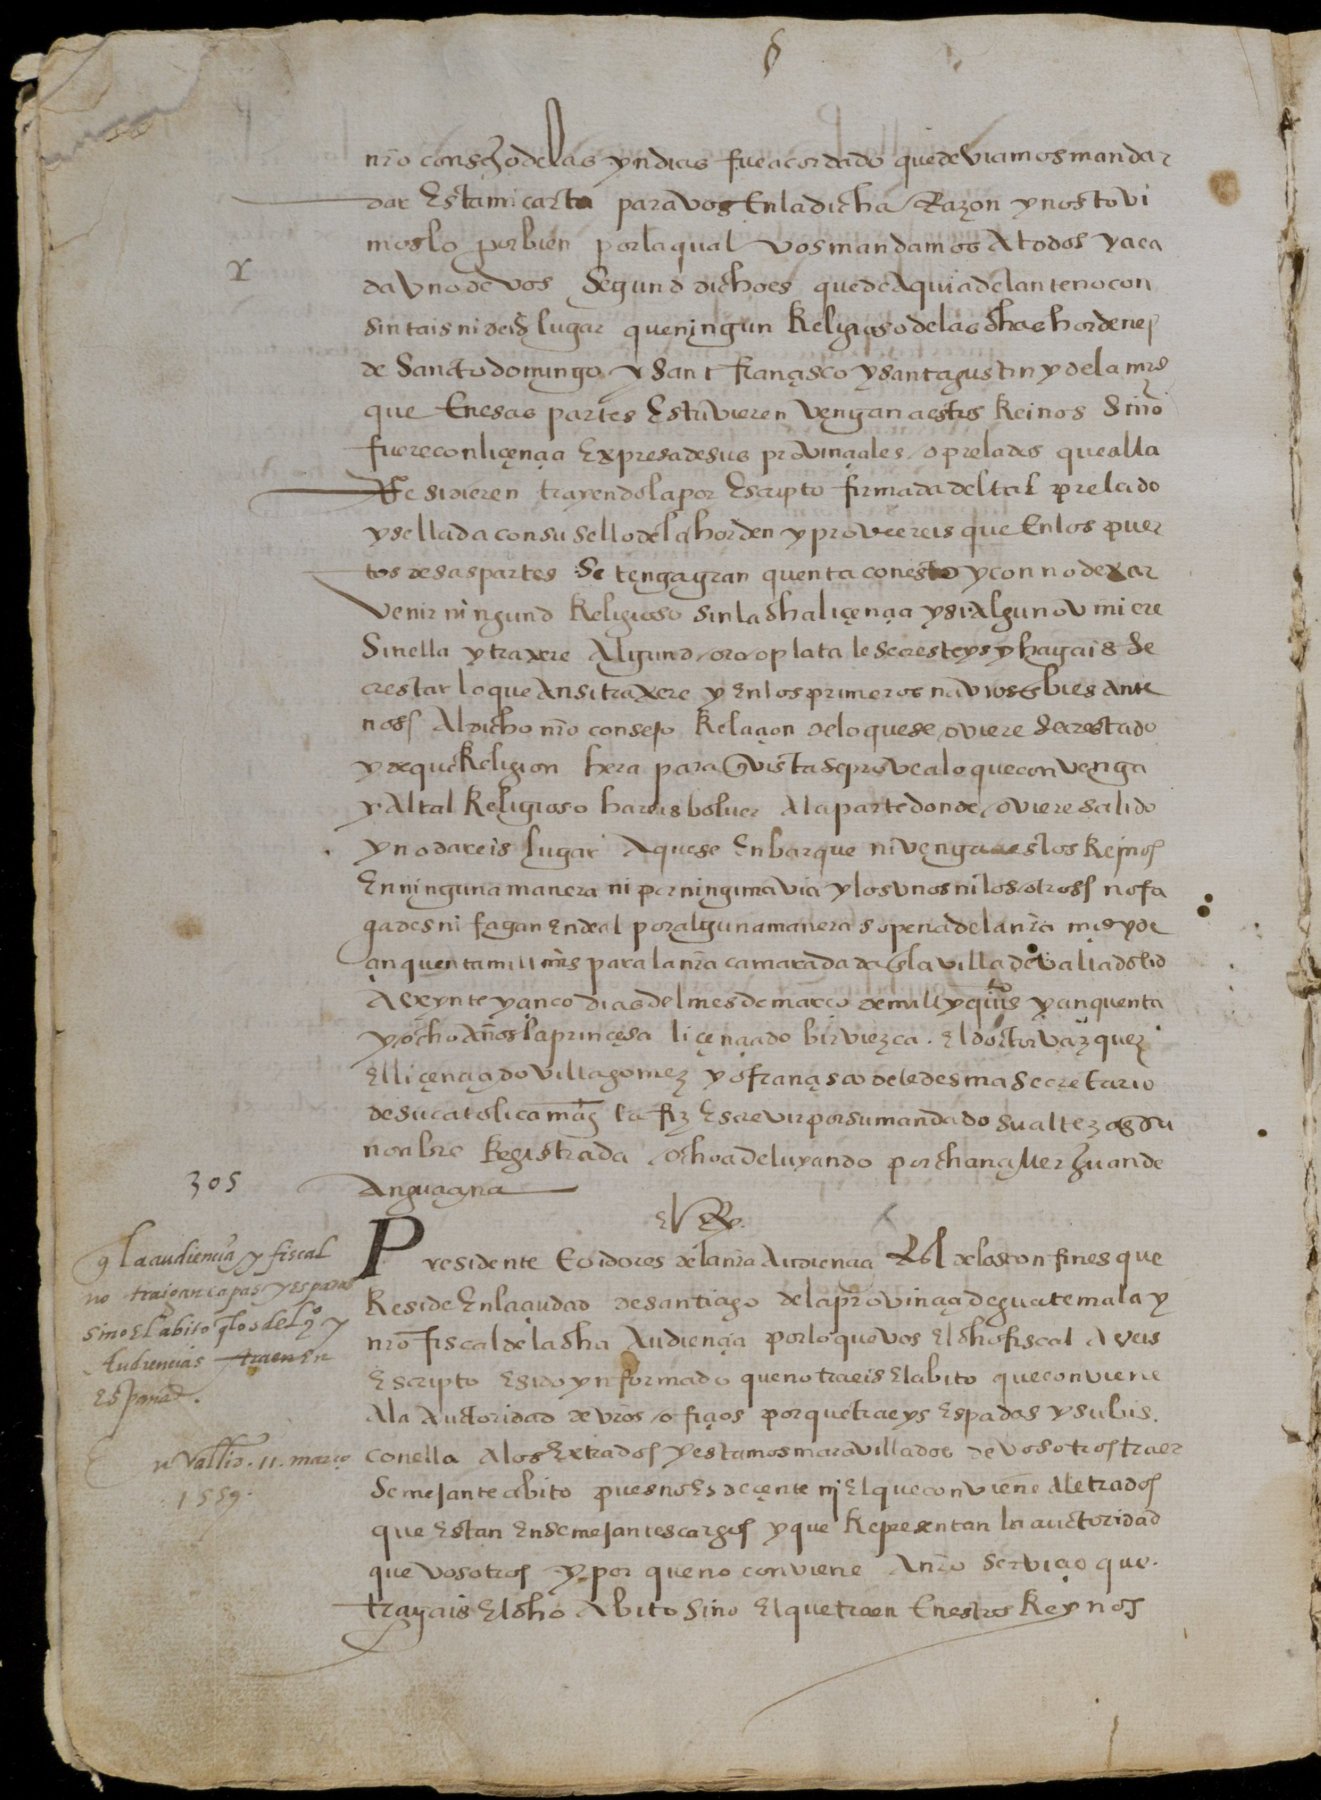 nro consejo de las yndias fue acordado que deviamos mandar
dar Esta mi carta para vos En la dicha Razon y nos tovi
moslo por bien por la qual vos mandamos A todos y a ca
da Uno de vos Segund dicho es que de Aqui adelante no con
sintais ni deis lugar que ningun Religioso de las dhas hordenes
de Sancto domingo y Sant francisco y santagustin y de la mrd
que En esas partes Estuvieren vengan a estos Reinos Sino
fuere con liçençia Expresa de sus provinçiales o prelados que alla
Residieren trayendola por Escripto firmada del tal prelado
y sellada con su sello de la horden y proveereis que En los puer
tos desas partes Se tenga gran quenta con esto y con no dexar
venir ningund Religioso sin la dha liçençia y si Alguno viniere
Sin ella y traxere Algund oro o plata le secresteys y hagais se
crestar lo que Ansi traxere y En los primeros navios Enbieis Ante
nos Al dicho nro consejo Relaçion de lo que se oviere secrestado
y de que Religion hera para q vista se provea lo que convenga
y Al tal Religioso hareis bolver A la parte donde oviere salido
y no dareis lugar A que se Enbarque ni venga a estos Reinos
En ninguna manera ni por ninguna via y los unos ni los otros no fa
gades ni fagan Ende al por alguna manera so pena de la nra mrd y de
çinquenta mill mrs para la nra camara dada En la villa de valladolid
A veynte y çinco dias del mes de março de mill y quis y çinquenta
y ocho Años la princesa liçençiado birviezca. El doctor vazquez
El liçençiado villagomez yo françisco de ledesma Secretario
de su catolica magd la fiz Escrevir por su mandado su alteza En su
nonbre Registrada ochoa de luyando por chançiller Juan de
Anguçiana
305
El Rey.
Presidente E oidores de la nra Audiençia Rl de los confines que
Reside En la çiudad de santiago de la provinçia de guatemala y
nro fiscal de la dha Audiençia por lo que vos El dho fiscal Aveis
Escripto E sido ynformado que no traeis El abito que conviene
A la Auctoridad de vros ofiçios porque traeys Espadas y subis
con ella A los Extrados y estamos maravillados de vosotros traer
Semejante abito pues no Es deçente ni El que conviene A letrados
que Estan En semejantes cargos y que Representan la auctoridad
que vosotros y por que no conviene A nro serviçio que
trayais El dho Abito Sino El que traen En estos Reynos
q la audiencia y fiscal
no traigan capas y espadas
sino El abito q los del Co y
Audiencias traen En
España.
Vallid. 11. março
1559.